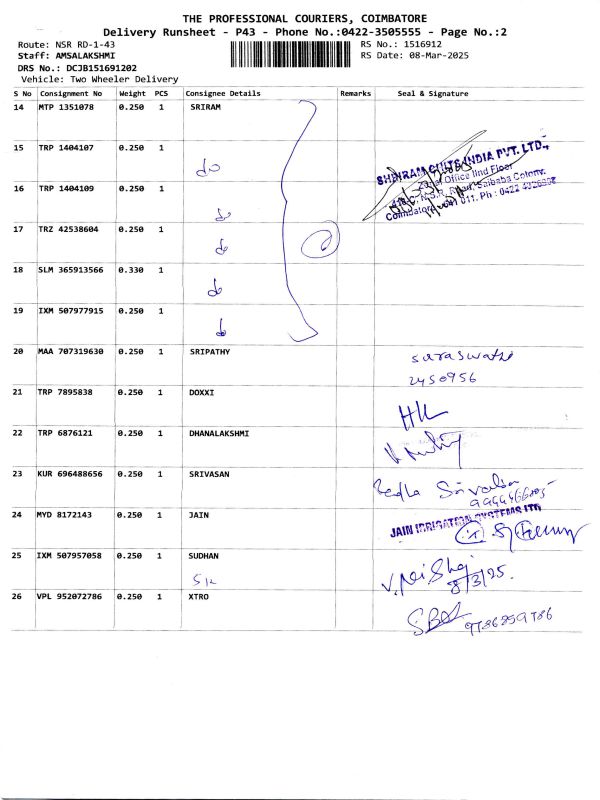 THE PROFESSIONAL COURIERS, COIMBATORE
Delivery Runsheet - P43 - Phone No.:0422-3505555 - Page No.:2
Route: NSR RD-1-43 RS No.: 1516912
Staff: AMSALAKSHMI RS Date: 08-Mar-2025
DRS No.: DCJB151691202
Vehicle: Two Wheeler Delivery
S No Consignment No Weight PCS Consignee Details Remarks Seal & Signature
14 MTP 1351078 0.250 1 SRIRAM
15 TRP 1404107 0.250 1
do
SHRIRAM CHITS INDIA PVT. LTD.,
Zonal Office IInd Floor
16 TRP 1404109 0.250 1
N.S.R. Road, Saibaba Colony.
Coimbatore 641 011. Ph : 0422
do
17 TRZ 42538604 0.250 1
do
18 SLM 365913566 0.330 1
do
19 IXM 507977915 0.250 1
do
20 MAA 707319630 0.250 1 SRIPATHY
2450956
21 TRP 7895838 0.250 1 DOXXI
22 TRP 6876121 0.250 1 DHANALAKSHMI
23 KUR 696488656 0.250 1 SRIVASAN
24 MYD 8172143 0.250 1 JAIN
JAIN IRRIGATION SYSTEMS LTD
25 IXM 507957058 0.250 1 SUDHAN
8/3/25.
26 VPL 952072786 0.250 1 XTRO